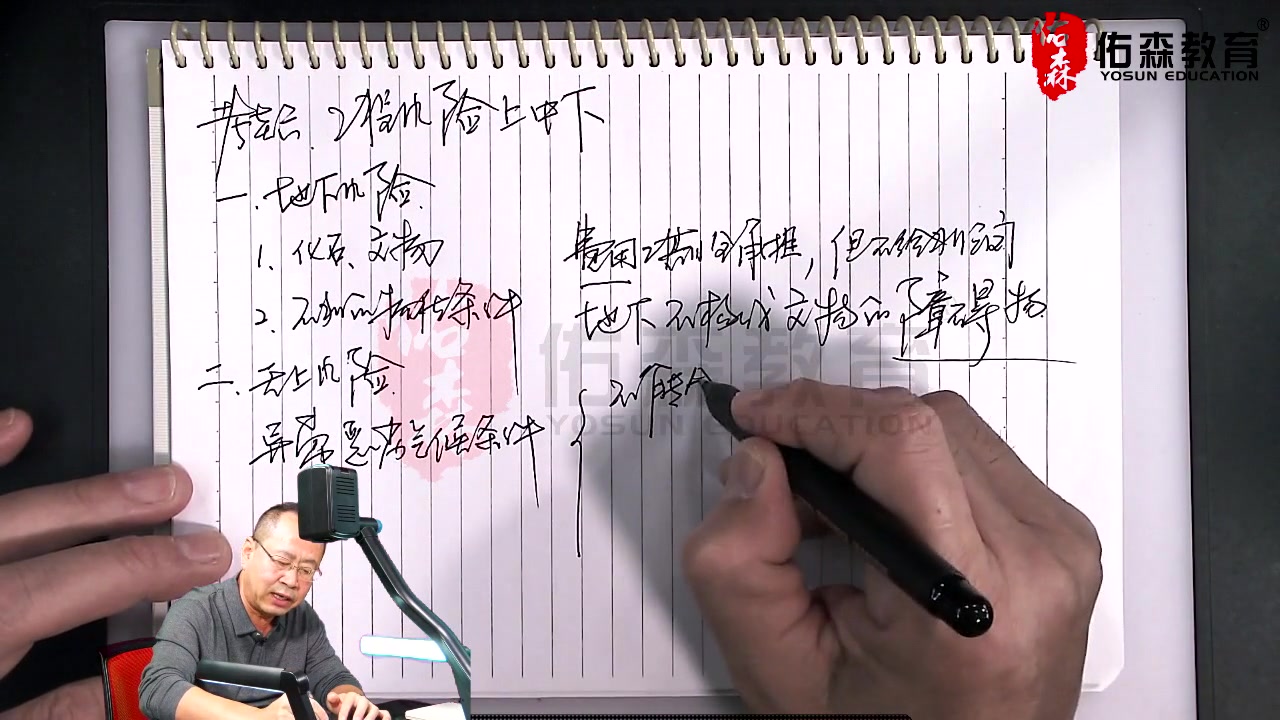 佑森教育®
YOSUN EDUCATION
佑森
工程风险上中下
一、地下风险
1、化石、文物
费用工期自承担，但不给利润
2、不利的物种条件
地下不构成文物的障碍物
二、天上风险
异常恶劣气候条件
不
佑森教育
YOSUN EDUCATION
佑森